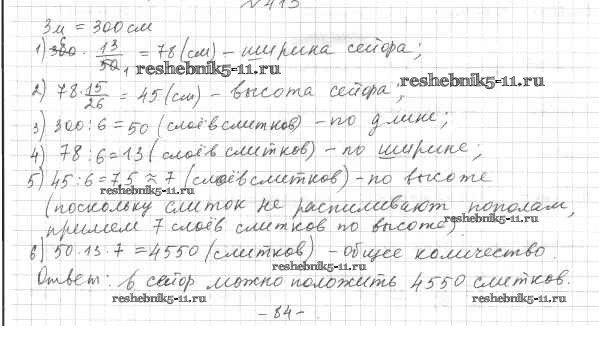 № 413
3м = 300 см
1) 300 · 13/50 = 78 (см) – ширина сейфа;
reshebnik5-11.ru
2) 78 · 15/26 = 45 (см) – высота сейфа;
reshebnik5-11.ru
3) 300 : 6 = 50 (слоёв слитков) – по длине;
4) 78 : 6 = 13 (слоёв слитков) – по ширине;
5) 45 : 6 = 7,5 ≈ 7 (слоёв слитков) – по высоте
reshebnik5-11.ru
(поскольку слиток не распиливают пополам,
reshebnik5-11.ru
примем 7 слоёв слитков по высоте)
6) 50 · 13 · 7 = 4550 (слитков) – общее количество.
reshebnik5-11.ru
Ответ: в сейф можно положить 4550 слитков.
reshebnik5-11.ru reshebnik5-11.ru
– 84 –